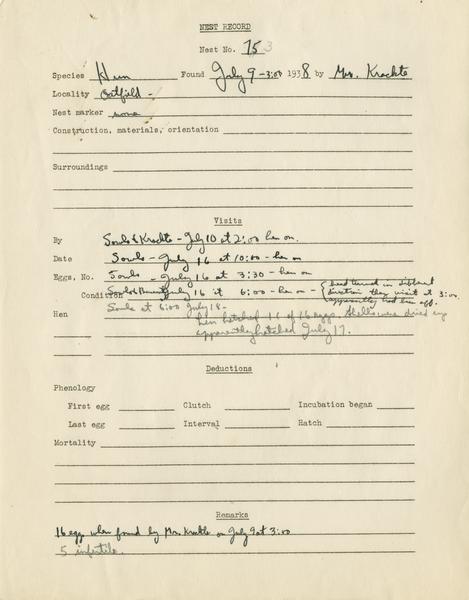 NEST RECORD
Nest No. 153
Species Hun Found July 9 - 3:00 1938 by Mr. Krackts
Locality Oatfield -
Nest marker none
Construction, materials, orientation
Surroundings
Visits
By Souls & Krackts - July 10 at 2:00 hen on.
Date Souls - July 16 at 10:00 - hen on
Eggs, No. Souls - July 16 at 3:30 - hen on
Condition Souls & July 16 at 6:00 - hen on - { head turned in different
direction than visit at 3:00.
apparently not been off.
Souls at 6:00 July 18 -
Hen hen hatched 11 of 16 eggs. Shells were dried up
apparently hatched July 17.
Deductions
Phenology
First egg Clutch Incubation began
Last egg Interval Hatch
Mortality
Remarks
16 egg when found by Mr. Krackts on July 9 at 3:00
5 infertile.